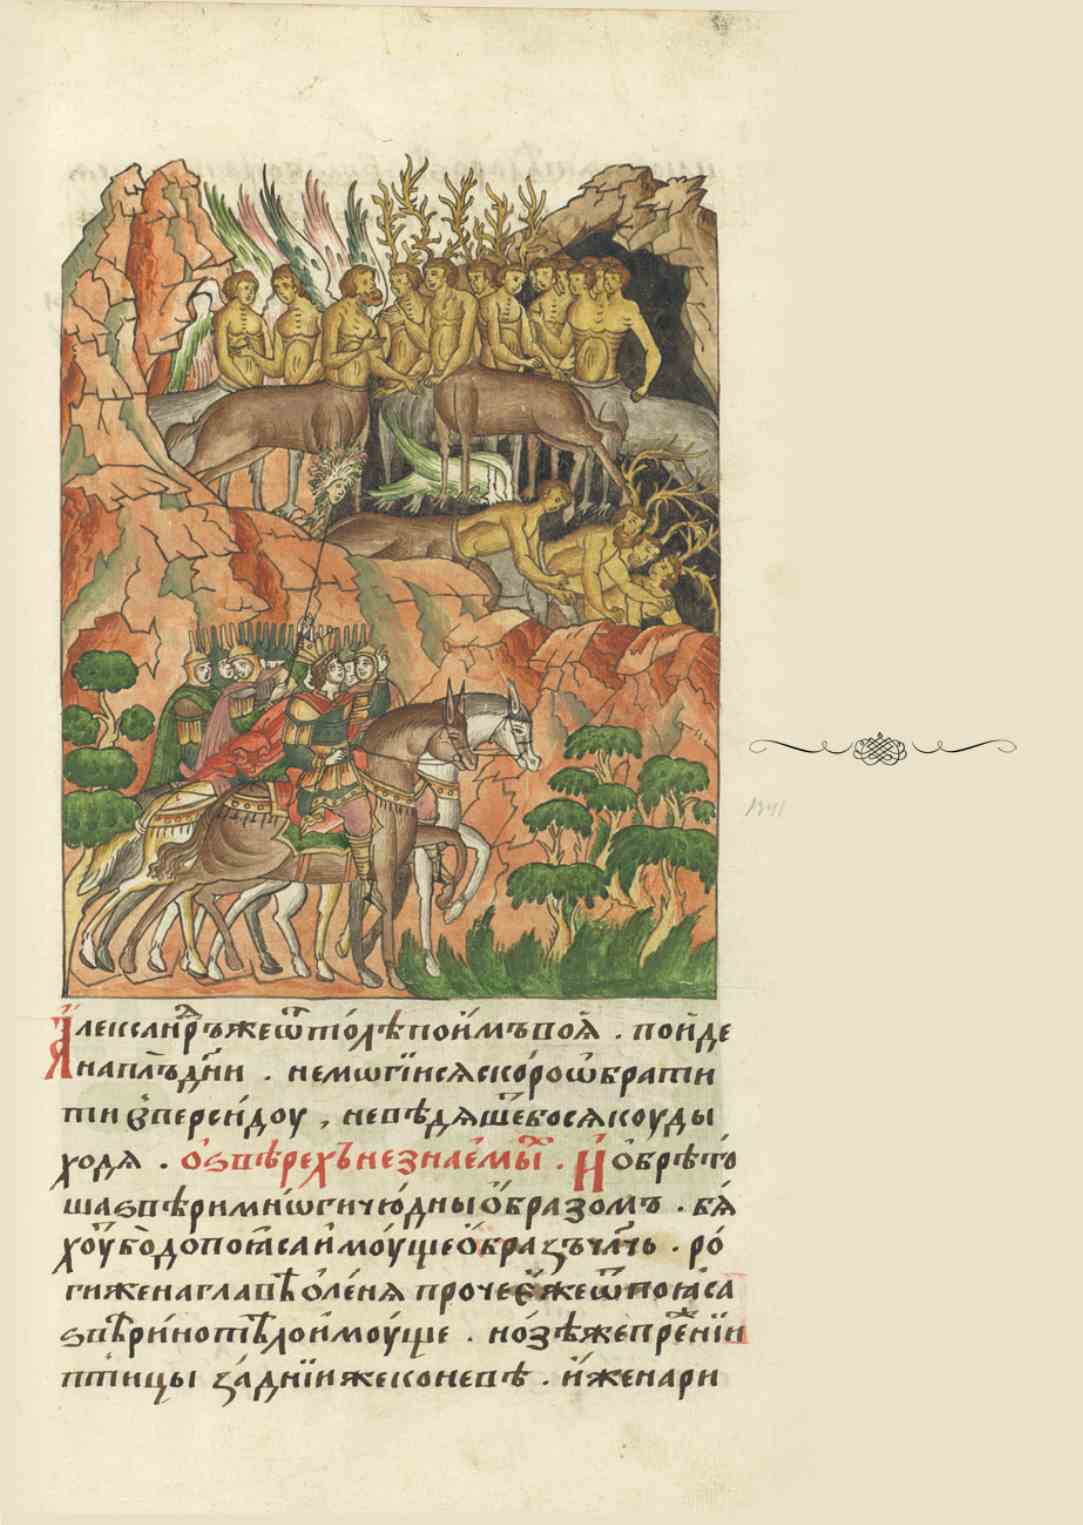 Алеѯандръ же ѿтолѣ поимъ воѧ . поиде
на п҃ дн҃и . не могіи сѧ скоро ѡбрати
ти в персидоу , не вѣдѧше бо сѧ коуды
ходѧ . о ѕвѣрехъ незнаемы . И обрѣто
ша ѕвѣри мнѡги чюдны ѡбразомъ . бѧ
хоу бо до поꙗса имоуще ѡбразъ чл҃чь . ро
ги же на главѣ оленѧ прочее же ѿ поꙗса
ѕвѣрино тѣло имоуще . нозѣ же преніи
птицы заднїи же коневѣ . иже нари